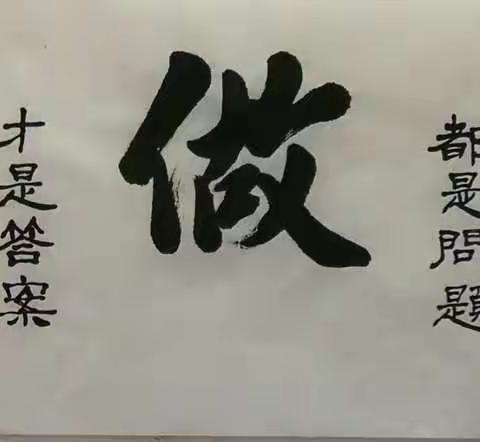 都是問題
做
才是答案